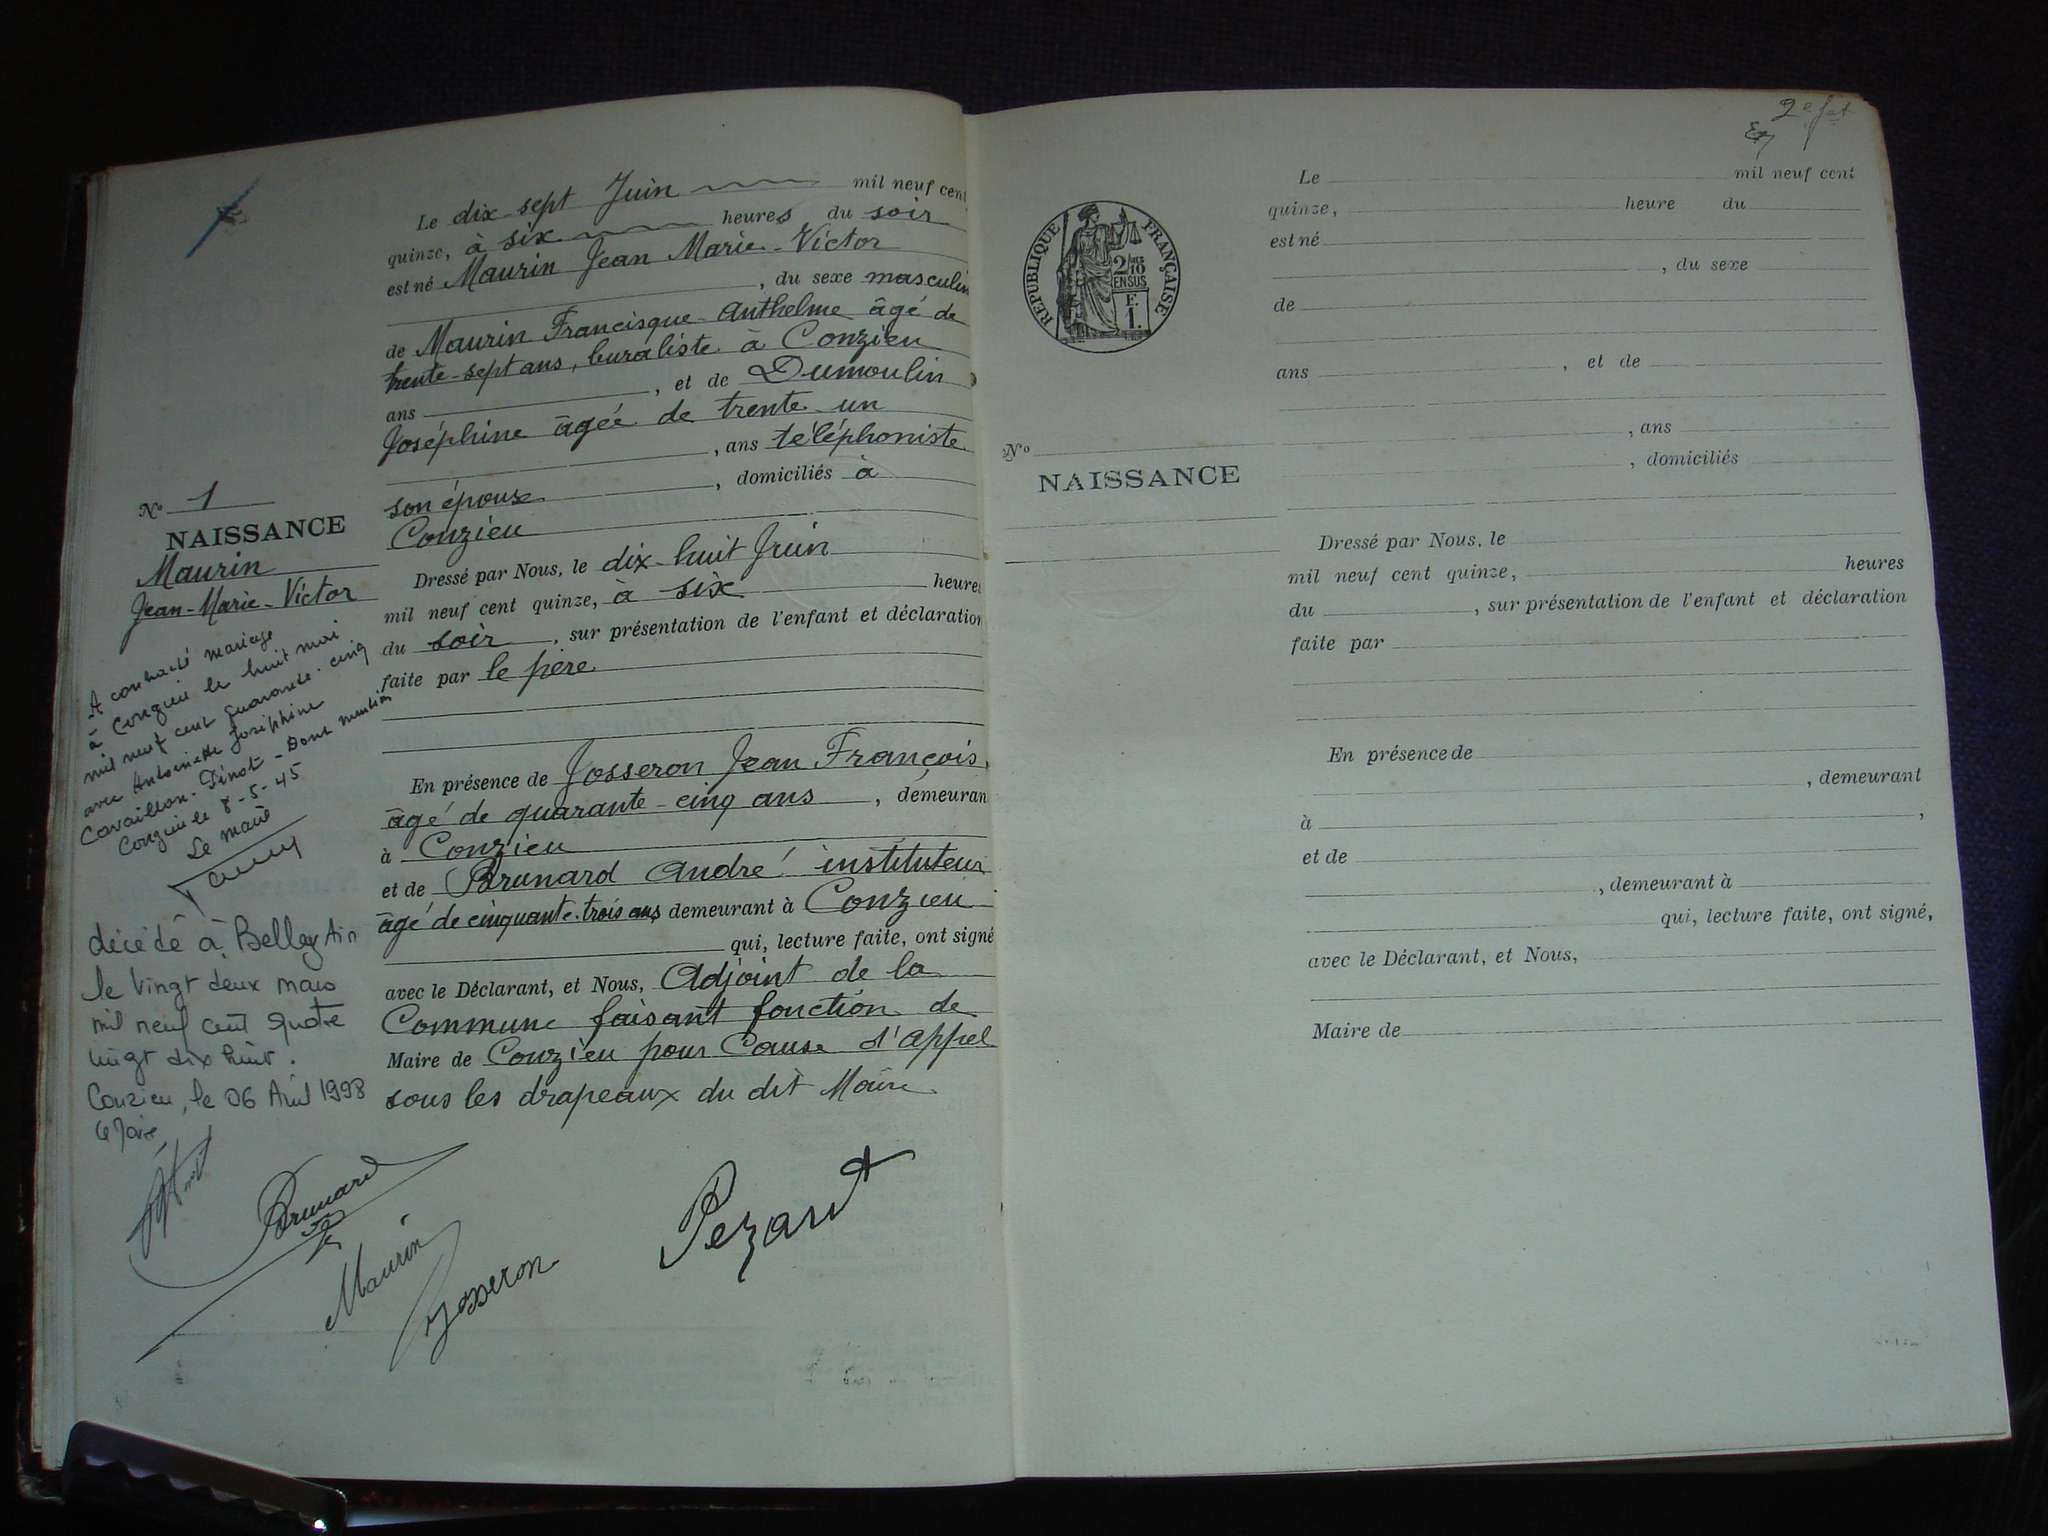 Le dix-sept Juin mil neuf cent
quinze, à six heures du soir
est né Maurin Jean Marie-Victor
, du sexe masculin
de Maurin Francisque-Anthelme âgé de
trente-sept ans, buraliste à Conzieu
ans , et de Dumoulin
Joséphine âgée de trente un
, ans téléphoniste
son épouse , domiciliés à
Conzieu
Dressé par Nous, le dix-huit Juin
mil neuf cent quinze, à six heures
du soir , sur présentation de l'enfant et déclaration
faite par le père
En présence de Josseron Jean François,
âgé de quarante-cinq ans , demeuran
à Conzieu
et de Brunard André instituteur
âgé de cinquante-trois ans demeurant à Conzieu
qui, lecture faite, ont signé
avec le Déclarant, et Nous, Adjoint de la
Commune faisant fonction de
Maire de Conzieu pour Cause d'appel
sous les drapeaux du dit Maire
Brunard
Maurin
Josseron
Pezant
No 1
NAISSANCE
Maurin
Jean-Marie-Victor
A contracté mariage
à Conzieu le huit mai
mil neuf cent quarante-cinq
avec Antoinette Joséphine
Cavaillon-Pinot - Dont mention
Conzieu le 8-5-45
Le maire
décédé à Belley Ain
le vingt deux mars
mil neuf cent quatre
vingt dix huit.
Conzieu, le 06 Avril 1998
Le Maire
2e
RÉPUBLIQUE FRANÇAISE
2/10
EN SUS
E.
1.
No
NAISSANCE
Le mil neuf cent
quinze, heure du
est né
, du sexe
de
ans , et de
, ans
, domiciliés
Dressé par Nous, le
mil neuf cent quinze, heures
du , sur présentation de l'enfant et déclaration
faite par
En présence de
, demeurant
à ,
et de
, demeurant à
qui, lecture faite, ont signé,
avec le Déclarant, et Nous,
Maire de